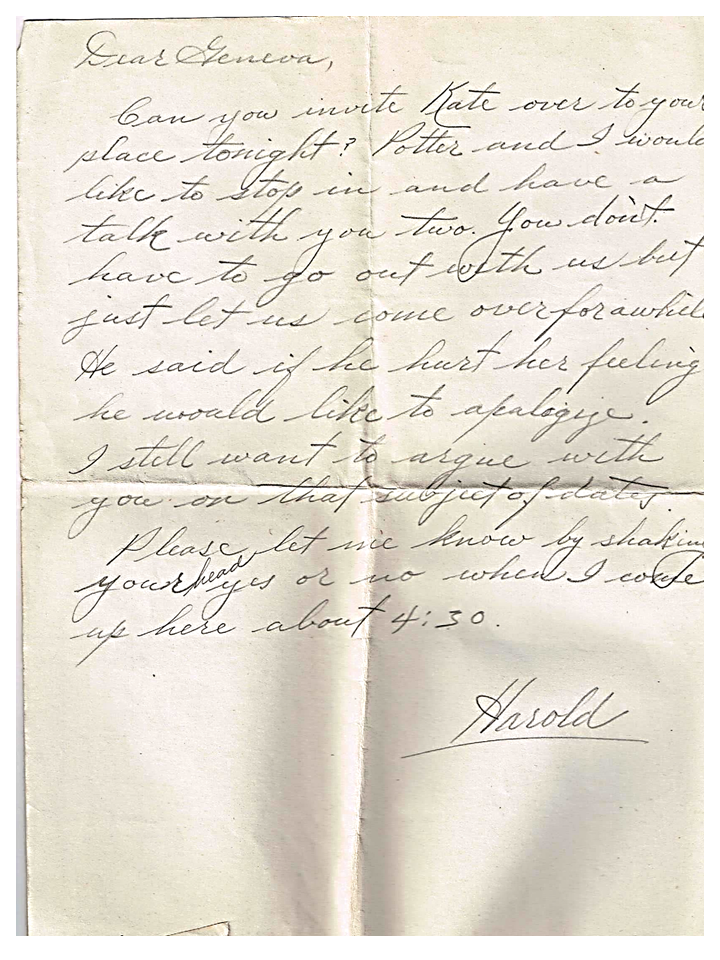 Dear Geneva,
Can you invite Kate over to your
place tonight? Potter and I would
like to stop in and have a
talk with you two. You don't
have to go out with us but
just let us come over for awhile
He said if he hurt her feeling
he would like to apaligize.
I still want to argue with
you on that subject of dates.
Please let me know by shakin
your head yes or no when I come
up here about 4:30.
Harold